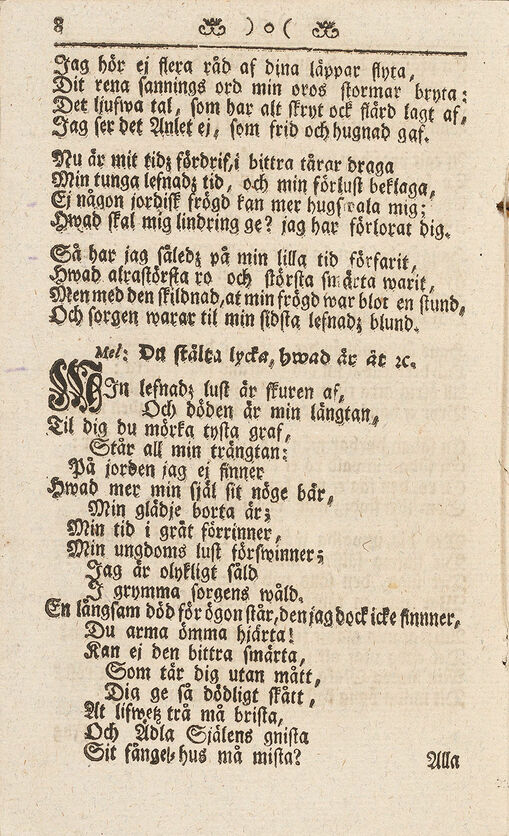 8 ) o (
Jag hör ej flera råd af dina läppar flyta,
Dit rena sannings ord min oros stormar bryta:
Det ljufwa tal, som har alt skryt ock flärd lagt af,
Jag ser det Anlet ej, som frid och hugnad gaf.
Nu är mit tidz fördrif, i bittra tårar draga
Min tunga lefnadz tid, och min förlust beklaga,
Ej någon jordisk frögd kan mer hugswala mig;
Hwad skal mig lindring ge? jag har förlorat dig.
Så har jag såledz på min lilla tid förfarit,
Hwad alrastörsta ro och största smärta warit,
Men med den skildnad, at min frögd war blot en stund,
Och sorgen warar til min sidsta lefnadz blund.
Mel: Du stälta lycka, hwad är ät ꝛc.
MIn lefnadz lust är skuren af,
Och döden är min längtan,
Til dig du mörka tysta graf,
Står all min trängtan:
På jorden jag ej finner
Hwad mer min själ sit nöge bär,
Min glädje borta är;
Min tid i gråt förrinner,
Min ungdoms lust förswinner;
Jag är olykligt såld
I grymma sorgens wåld.
En långsam död för ögon står, den jag dock icke finnner,
Du arma ömma hjärta!
Kan ej den bittra smärta,
Som tär dig utan mått,
Dig ge så dödligt skått,
At lifwetz trå må brista,
Och Ädla Själens gnista
Sit fängel-hus må mista?
Alla